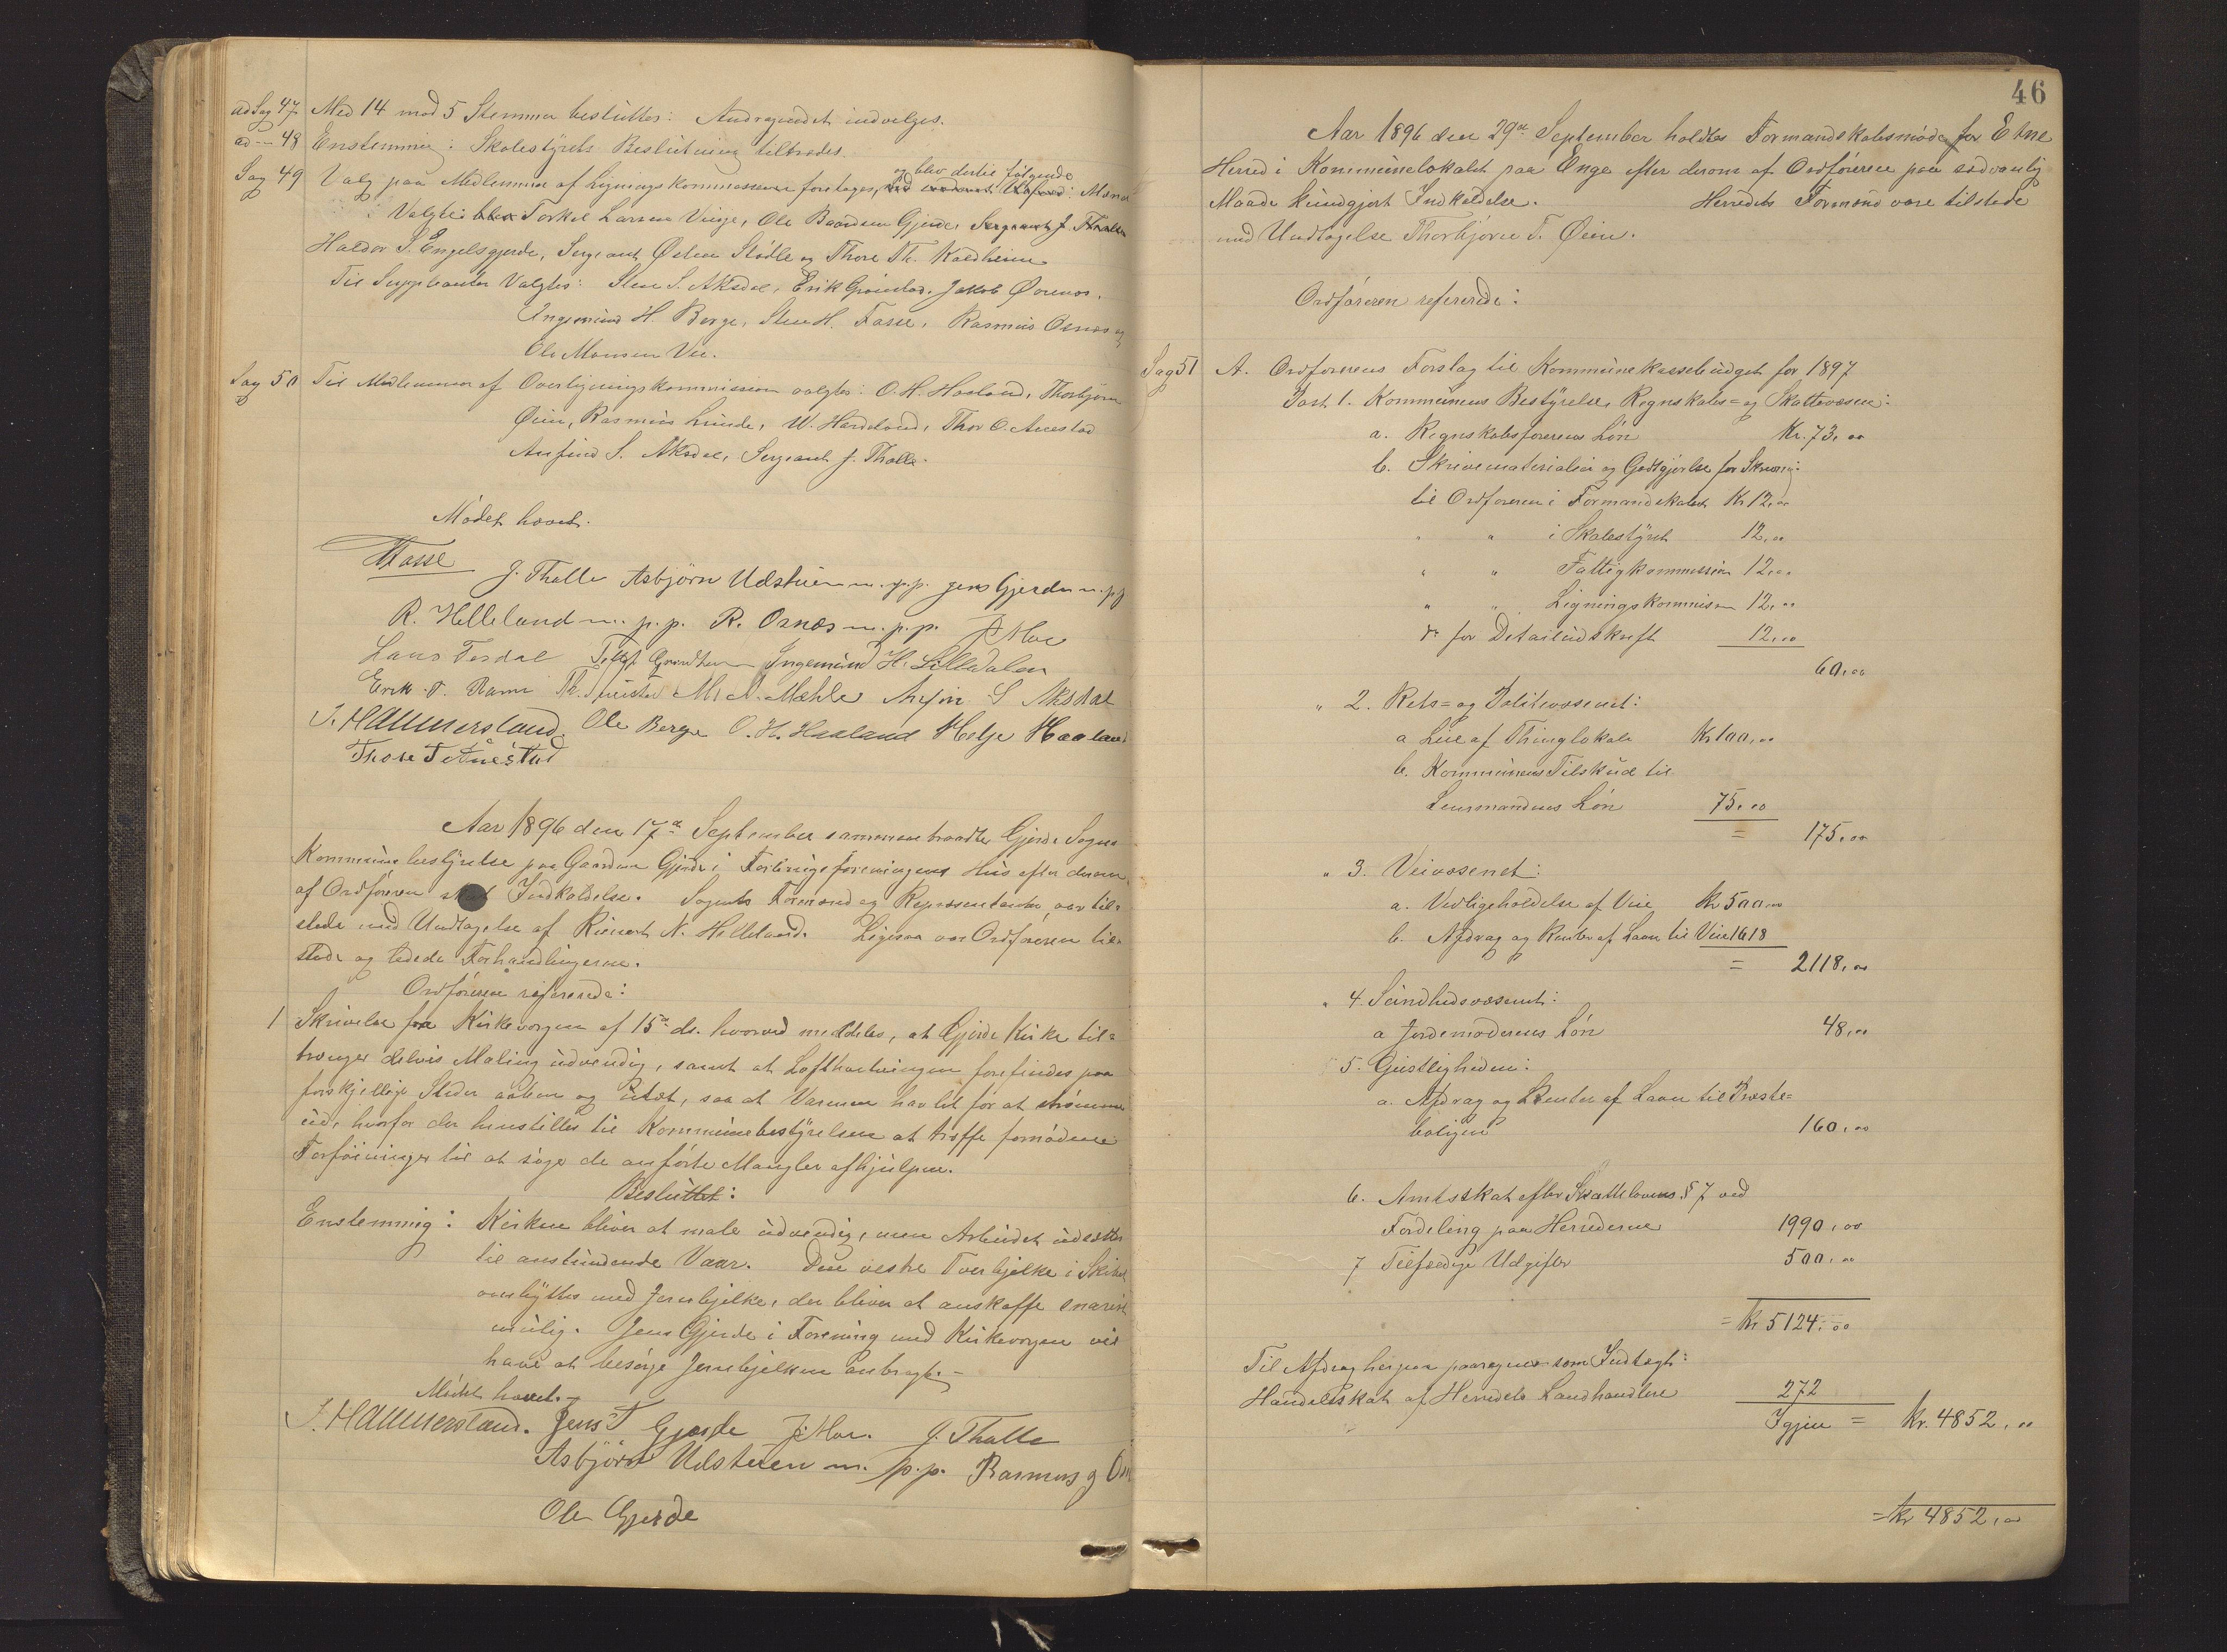 ad Sag 47 Med 14 mod 5 Stemmer besluttes: Andragendet indvelges.
ad -- 48 Enstemmig: Skolestyrets Beslutning tiltrædes.
og blev dertil følgende
Sag 49 Valg paa Medlemmer af Ligningskommissionen foretages,
Valgte: blev Torkel Larsen Vinje, Ole Baardsen Gjerde, Sergeant J. Thalle
Haldor S. Engelsgjerde, Sergeant Østen Stødle og Thore Th. Kaldheim
Til Suppleanter Valgtes: Sten S. Aksdal, Erik Grindem, Jakob Ørenes.
Ingemund H. Berge, Sten H. Fasse, Rasmus Osnes og
Ole Monsen Vee.
Sag 50 Til Medlemmer af Overligningskommission valgtes: O. H. Haaland, Thorbjørn
Øien, Rasmus Lunde, W. Hardeland, Thor O. Anestad
Anfind S. Aksdal, Sergeant J. Thalle.
Mødet hævet.
Fasse J. Thalle Asbjørn Udstuen m. p.p. Jens Gjerde m. p.p.
R. Helleland m. p.p. R. Osnes m. p.p. J. Moe
Hans Tesdal Grindheim Ingemund H. Lilledalen
Erik T. Rame M. A. Mæhle Anfin S Aksdal
J. Hammersland. Ole Berge O. H. Haaland Helje Haaland
Thore T Ånestad
Aar 1896 den 17de September sammentraadte Gjerde Sogns
Kommunebestyrelse paa Gaarden Gjerde i Forbrugsforeningens Hus efter derom
af Ordføreren skeet Indkaldelse. Sognets Formænd og Repræsentanter var til-
stede med Undtagelse af Rienert N. Helleland. Ligesaa var Ordføreren til-
stede og ledede Forhandlingerne.
Ordføreren refererede:
1 Skrivelse fra Kirkevergen af 15de ds. hvorved meddeles, at Gjerde Kirke til-
trænger delvis Maling udvendig, samt at Lofthvælvingen forefindes paa
forskjellige Steder aaben og utæt, saa at Varmen har let for at strømme
ud, hvorfor der henstilles til Kommunebestyrelsen at træffe fornødne
Forføininger til at søge de anførte Mangler afhjulpne.
Besluttet:
Enstemmig: Kirken bliver at male udvendig, men Arbeidet udsættes
til anstundende Vaar. Den vestre Tverbjelke i Skibet
ombyttes med Jernbjelke, der bliver at anskaffe snarest
mulig. Jens Gjerde i Forening med Kirkevergen vil
have at besørge Jernbjelken anbragt. –
Mødet hævet. –
J. Hammersland. Jens T Gjerde J. Moe. J. Thalle
Asbjørn Udstuen m. p.p. Rasmus
Ole Gjerde
46
Aar 1896 den 29de September holdtes Formandskabsmøde for Etne
Herred i Kommunelokalet paa Enge efter derom af Ordføreren paa sædvanlig
Maade kundgjort Indkaldelse. Herredets Formænd vare tilstede
med Undtagelse Thorbjørn T. Øien.
Ordføreren refererede:
Sag 51 A. Ordførerens Forslag til Kommunekassebudget for 1897
Post 1. Kommunens Bestyrelse, Regnskabs= og Skattevæsen:
a. Regnskabsførerens Løn Kr. 73,00
b. Skrivematerialier og Godtgjørelse for Skrivning:
til Ordføreren i Formandskabet Kr 12,00
" " i Skolestyret 12,00
" " Fattigkommission 12,00
" " Ligningskommission 12,00
do for Detailudskrift 12,00
60,00
" 2. Rets= og Politivæsenet:
a Leie af Thinglokale Kr 100,00
b. Kommunens Tilskud til
Lensmandens Løn 75,00
= 175,00
" 3. Veivæsenet:
a. Vedligeholdelse af Veie Kr 500,00
b. Afdrag og Renter af Laan til Veie 1618
= 2118,00
" 4. Sundhedsvæsenet:
a Jordemoderens Løn 48,00
5. Geistligheden:
a. Afdrag og Renter af Laan til Præste=
boligen 160,00
6. Amtsskat efter Skattelovens § 7 ved
Fordeling paa Herrederne 1990,00
7 Tilfældige Udgifter 500,00
= Kr 5124,00
Til Afdrag herpaa paaregnes som Indtægt:
Handelsskat af Herredets Landhandlere 272
Igjen = Kr. 4852,00
= Kr 4852,00